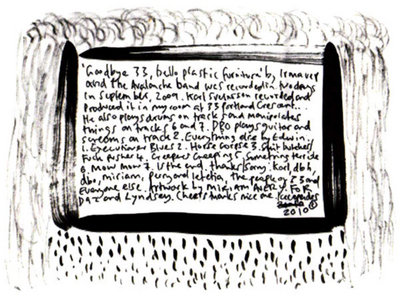 "Goodbye 33, hello plastic furniture" by
and the Avalanche band was recorded in two days
in September, 2009. Karl recorded and
produced it in my room at 33 Portland Crescent.
He also plays drums on track 5 and manipulates
things on tracks 6 and 7. DBO plays guitar and
screams on track 2. Everything else by Edwin.
1. Executioner Blues 2. Horse corpse 3. Shit butcher/
Fuck pusher 4. Creepers Creeping 5. Something terrible
6. Mow Mow 7. Is the end, thanks, sorry. Karl, db6
dbo, miriam, perry and letetia, the people of Z 3 and
Everyone else. Artwork by miriam. FOR
DAZ and Lyndsey. Cheers thanks nice one.
2010